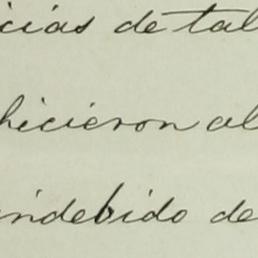 icias de tal
hicieron al
indebido de